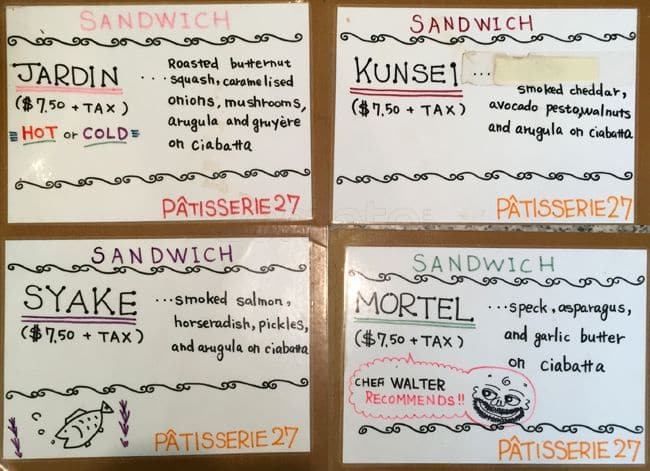 SANDWICH
JARDIN
($7.50 + TAX)
HOT or COLD
... Roasted butternut
squash, caramelised
onions, mushrooms,
arugula and gruyère
on Ciabatta
PÂTISSERIE 27
SANDWICH
KUNSEI ...
($7.50 + TAX)
smoked cheddar,
avocado pesto, walnuts
and arugula on ciabatta
PÂTISSERIE 27
SANDWICH
SYAKE
($7.50 + TAX)
...smoked salmon,
horseradish, pickles,
and arugula on ciabatta
PÂTISSERIE 27
SANDWICH
MORTEL
($7.50 + TAX)
...speck, asparagus,
and garlic butter
on ciabatta
CHEF WALTER
RECOMMENDS!!
PÂTISSERIE 27